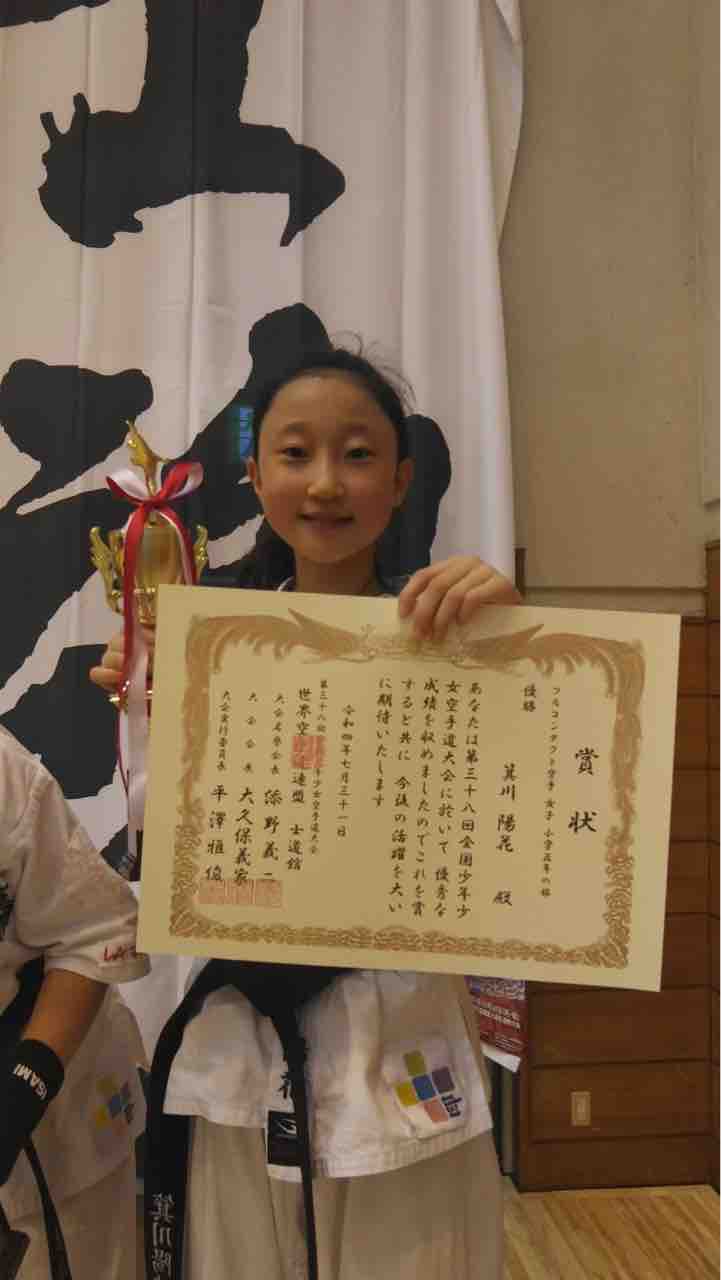 賞状
フルコンタクト空手 女子 小学五年の部
優勝
箕川 陽花 殿
あなたは第三十八回全国少年少
女空手道大会に於いて 優秀な
成績を収めましたのでこれを賞
すると共に 今後の活躍を大い
に期待いたします
令和四年七月三十一日
第三十八回 少年少女空手道大会
世界空 連盟 士道館
大会名誉会長 添野義二
大会会長 大久保義家
大会実行委員長 平澤雅俊
箕川陽